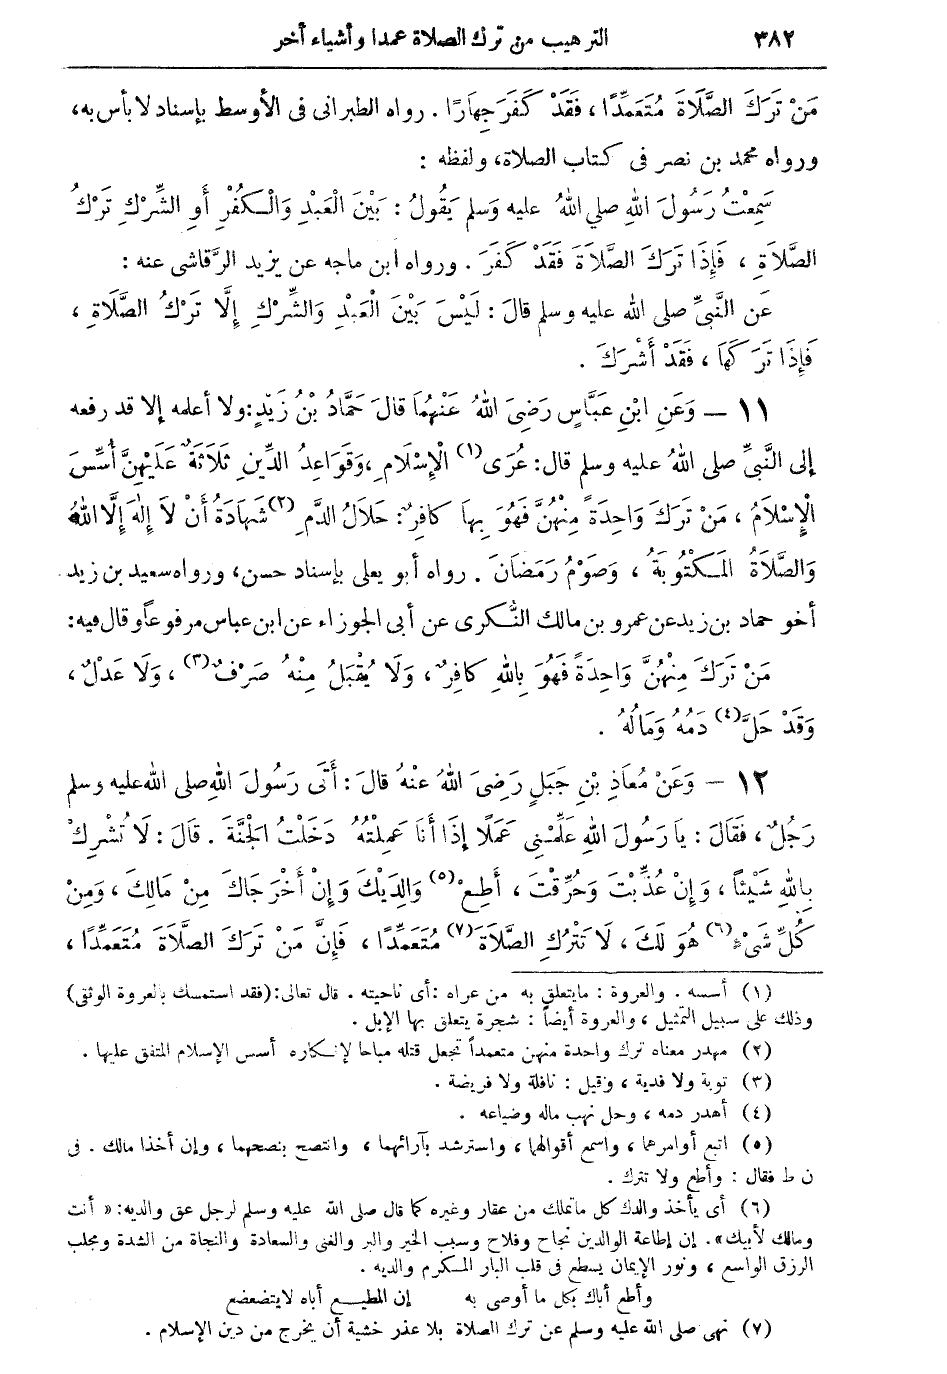 ٣٨٢ الترهيب من ترك الصلاة عمدا وأشياء أخر
مَنْ تَرَكَ الصَّلَاةَ مُتَعَمِّدًا ، فَقَدْ كَفَرَ جِهَارًا . رواه الطبرانى فى الأوسط بإسناد لا بأس به،
ورواه محمد بن نصر فى كتاب الصلاة، ولفظه :
سَمِعْتُ رَسُولَ اللهِ صلي اللهُ عليه وَسلم يَقُولُ : بَيْنَ الْعَبْدِ وَالْكُفْرِ أَوِ الشِّرْكِ تَرْكُ
الصَّلَاةِ ، فَإِذَا تَرَكَ الصَّلَاةَ فَقَدْ كَفَرَ . ورواه ابن ماجه عن يزيد الرَّقاشى عنه :
عَنِ النَّبِيِّ صلى الله عليه وسلم قالَ : لَيْسَ بَيْنَ الْعَبْدِ وَالشِّرْكِ إِلَّا تَرْكُ الصَّلَاةِ ،
فَإِذَا تَرَكَهَا ، فَقَدْ أَشْرَكَ .
١١ — وَعَنِ ابْنِ عَبَّاسٍ رَضِىَ اللهُ عَنْهُمَا قالَ حَمَّادُ بْنُ زَيْدٍ: ولا أعلمه إلا قد رفعه
إلى النَّبِيِّ صلى اللهُ عليه وسلم قال: عُرَى (١) الْإِسْلَامِ ، وَقَوَاعِدُ الدِّينِ ثَلَاثَةٌ عَلَيْهِنَّ أُسِّسَ
الْإِسْلَامُ ، مَنْ تَرَكَ وَاحِدَةً مِنْهُنَّ فَهُوَ بِهَا كافِرٌ : حَلَالُ الدَّمِ (٢) شَهَادَةُ أَنْ لَا إِلٰهَ إِلَّا اللهُ
وَالصَّلَاةُ الْمَكْتُوبَةُ ، وَصَوْمُ رَمَضَانَ . رواه أبو يعلى بإسناد حسن، ورواه سعيد بن زيد
أخو حماد بن زيد عن عمرو بن مالك النُّكرى عن أبى الجوزاء عن ابن عباس مرفوعاً وقال فيه:
مَنْ تَرَكَ مِنْهُنَّ وَاحِدَةً فَهُوَ بِاللهِ كافِرٌ ، وَلَا يُقْبَلُ مِنْهُ صَرْفٌ (٣) ، وَلَا عَدْلٌ ،
وَقَدْ حَلَّ (٤) دَمُهُ وَمَالُهُ .
١٢ — وَعَنْ مُعَاذِ بْنِ جَبَلٍ رَضِىَ اللهُ عَنْهُ قالَ : أَتَى رَسُولَ اللهِ صلى الله عليه وسلم
رَجُلٌ ، فَقَالَ : يَا رَسُولَ اللهِ عَلِّمْنِى عَمَلًا إِذَا أَنَا عَمِلْتُهُ دَخَلْتُ الْجَنَّةَ . قَالَ : لَا تُشْرِكْ
بِاللهِ شَيْئاً ، وَإِنْ عُذِّبْتَ وَحُرِّقْتَ ، أَطِعْ (٥) وَالِدَيْكَ وَإِنْ أَخْرَجَاكَ مِنْ مَالِكَ ، وَمِنْ
كُلِّ شَىْءٍ (٦) هُوَ لَكَ ، لَا تَتْرُكِ الصَّلَاةَ (٧) مُتَعَمِّدًا ، فَإِنَّ مَنْ تَرَكَ الصَّلَاةَ مُتَعَمِّدًا ،
(١) أسسه . والعروة : مايتعلق به من عراه : أى ناحيته . قال تعالى: (فقد استمسك بالعروة الوثقى)
وذلك على سبيل التمثيل ، والعروة أيضاً : شجرة يتعلق بها الإبل .
(٢) مهدر معناه ترك واحدة منهن متعمداً تجعل قتله مباحا لإنكاره أسس الإسلام المتفق عليها .
(٣) توبة ولا فدية ، وقيل : نافلة ولا فريضة .
(٤) أهدر دمه ، وحل نهب ماله وضياعه .
(٥) اتبع أوامرهما ، واسمع أقوالهما ، واسترشد بآرائهما ، وانتصح بنصحهما ، وإن أخذا مالك . فى
ن ط فقال : وأطع ولا تترك .
(٦) أى يأخذ والدك كل ماتملك من عقار وغيره كما قال صلى الله عليه وسلم لرجل عق والديه: « أنت
ومالك لأبيك». إن إطاعة الوالدين نجاح وفلاح وسبب الخير والبر والغنى والسعادة والنجاة من الشدة ومجلب
الرزق الواسع ، ونور الإيمان يسطع فى قلب البار المكرم والديه .
وأطع أباك بكل ما أوصى به إن المطيـع أباه لايتضعضع
(٧) نهى صلى الله عليه وسلم عن ترك الصلاة بلا عذر خشية أن يخرج من دين الإسلام .